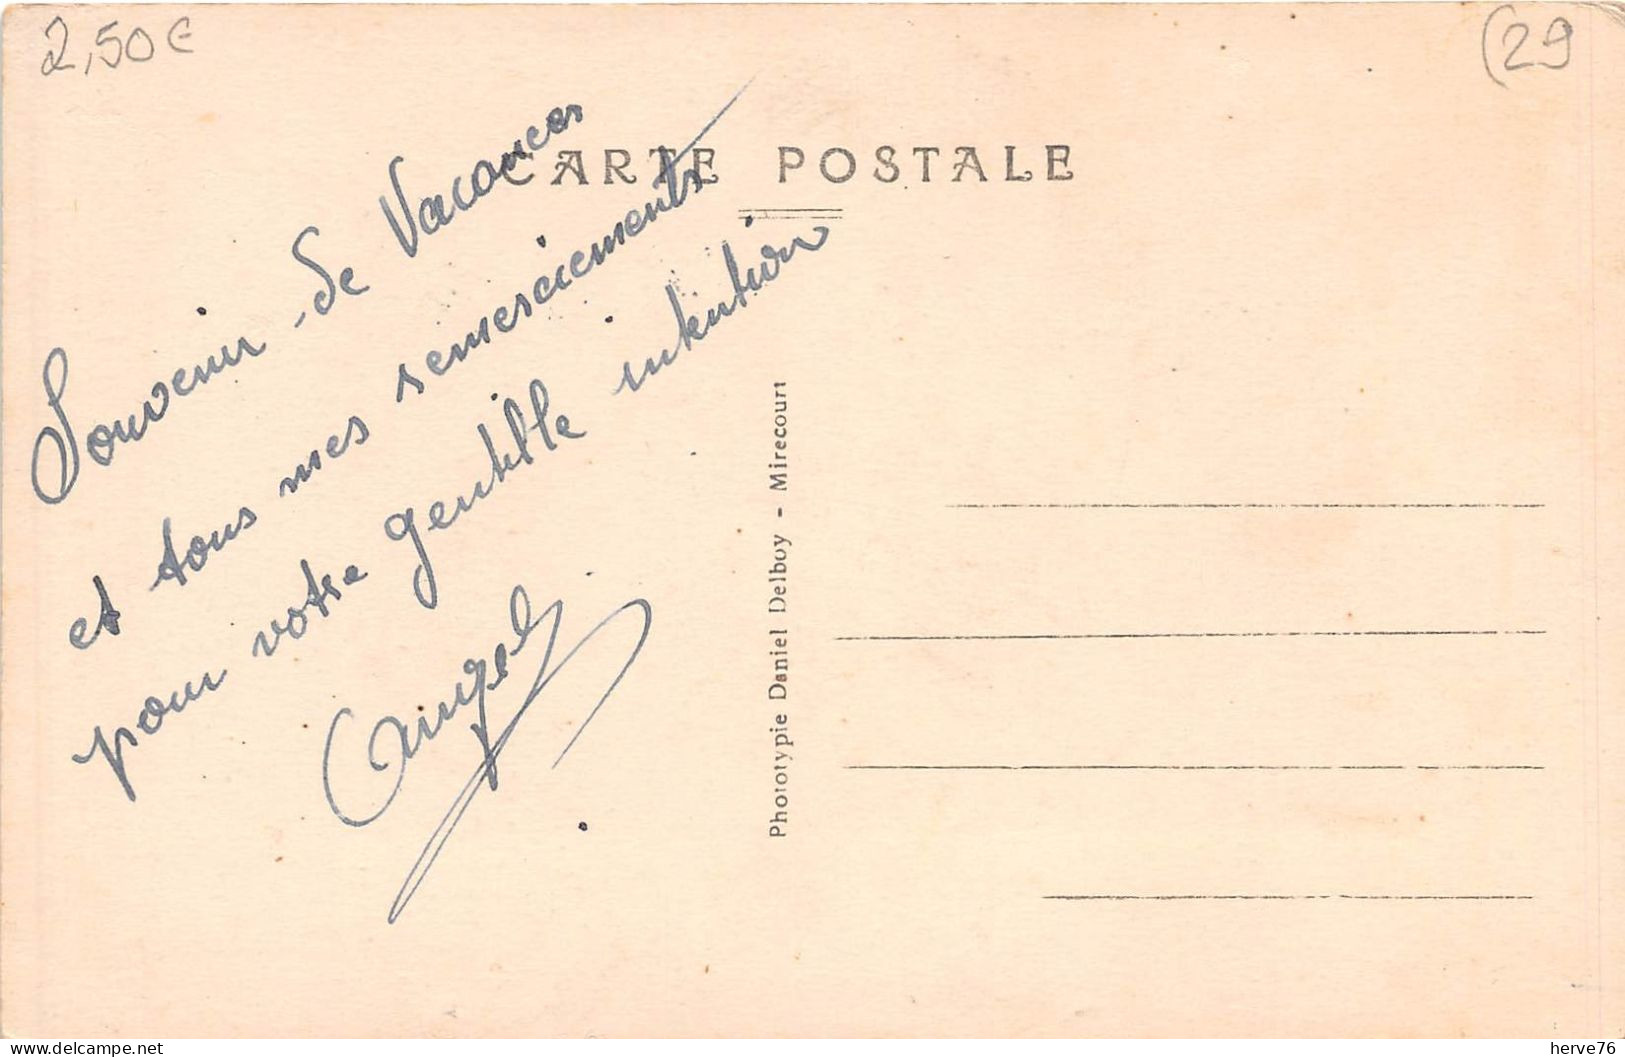 2,50€
(29
CARTE POSTALE
Souvenir de Vacances
et tous mes remerciements
pour votre gentille intention
Phototypie Daniel Delboy - Mirecourt
delcampe.net
herve76